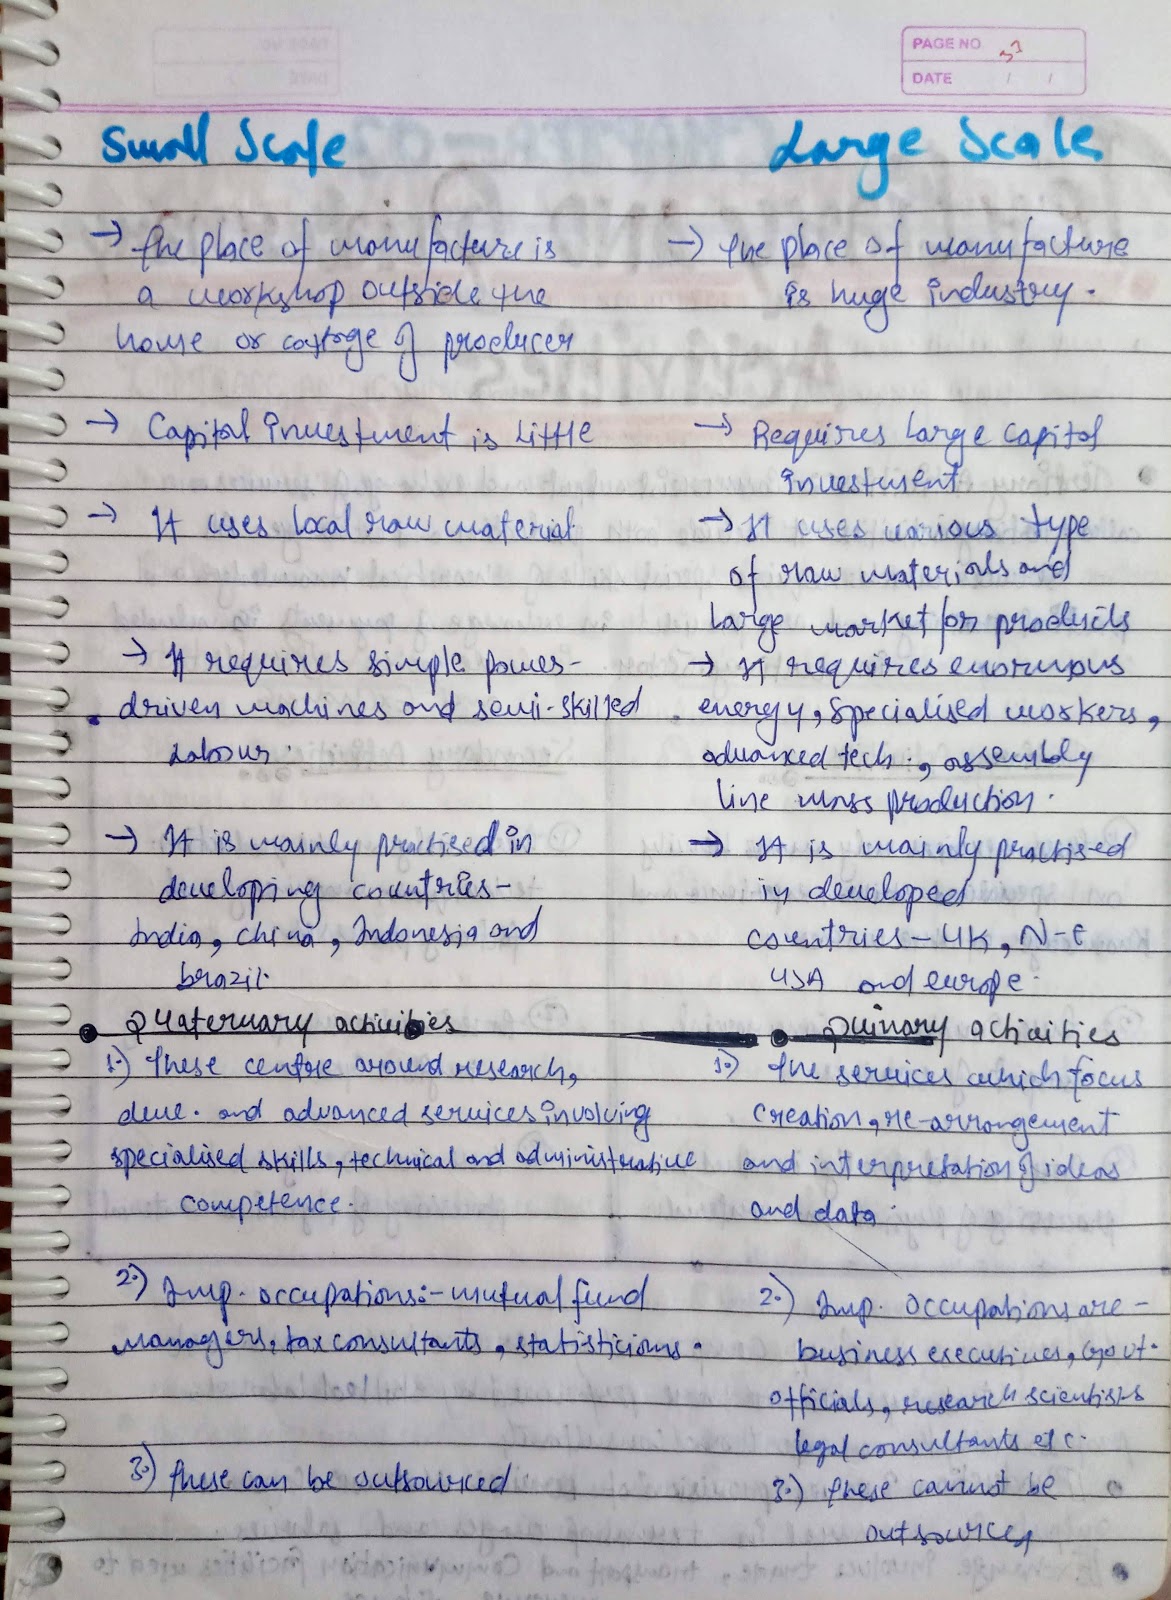 PAGE NO 31
DATE / /
Small Scale
→ The place of manufacture is
a workshop outside the
home or cottage of producer
→ Capital investment is Little
→ It uses local raw material
→ It requires simple power-
driven machines and semi-skilled
Labour.
→ It is mainly practised in
developing countries-
India, China, Indonesia and
brazil.
Large Scale
→ The place of manufacture
is huge industry.
→ Requires large capital
investment
→ It uses various type
of raw materials and
large market for products
→ It requires enormous
energy, specialised workers,
advanced tech., assembly
line mass production.
→ It is mainly practised
in developed
countries - UK, N-E
USA and europe.
• Quaternary activities
1.) These centre around research,
deve. and advanced services involving
specialised skills, technical and administrative
competence.
2.) Imp. occupations:- mutual fund
managers, tax consultants, statisticians.
3.) These can be outsourced
• Quinary activities
1.) The services which focus
creation, re-arrangement
and interpretation of ideas
and data.
2.) Imp. occupations are -
business executives, Govt.
officials, research scientists
legal consultants etc.
3.) These cannot be
outsource,